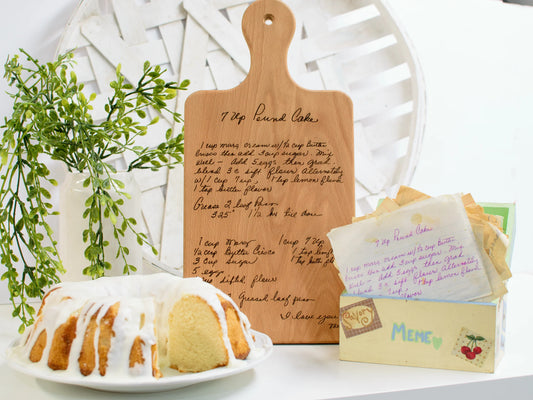 7 Up Pound Cake
1 cup marg cream w/ ½ cup butter
Crisco then add 3 cup sugar. Mix
Well - Add 5 eggs then grad.
blend 3 c sift flour alternately
w/ 1 cup 7 up, 1 tsp lemon flavor
1 tsp butter flavor
Grease 2 loaf pans
325° 1 ½ hr til done
1 cup Marg 1 cup 7 up
½ cup Butter Crisco 1 tsp
3 cup sugar 1 tsp
5 eggs
sifted flour
Greased loaf pan
I love you
7 Up Pound Cake
1 cup marg cream w/ ½ cup butter
Crisco then add 3 cup sugar. Mix
Well - Add 5 eggs then
blend 3 c sift flour Alternately
Savory
MEME